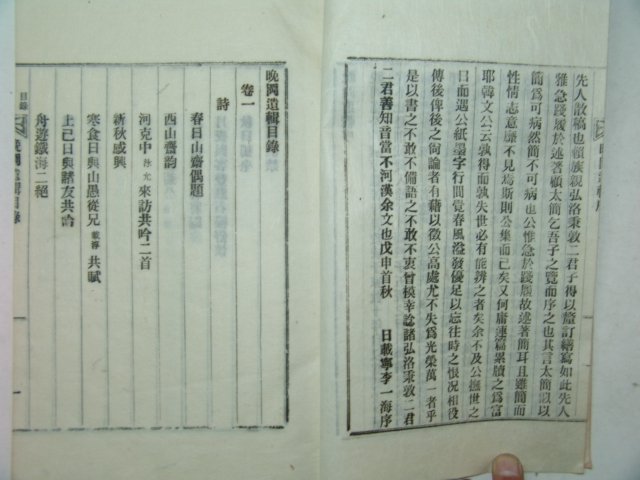 先人散稿也賴族親弘洛秉敦二君子得以釐訂繕寫如此先人
雅急踐履於述著顧太簡乞吾子之覽而序之也其言太簡似以
簡爲可病然簡不可病也公惟急於踐履故述著簡耳且雖簡而
性情志意靡不見焉斯則公集而已矣又何庸連篇累牘之爲富
耶韓文公云孰得而孰失世必有能辨之者矣余不及公撫世之
日而遇公紙墨字行間覺春風溢發優足以忘往時之恨况相役
傳後俾後之尙論者有藉以徵公高處尤不失爲光榮萬一者乎
是以書之不敢不備語之不敢不衷曾模幸諗諸弘洛秉敦二君
二君善知音當不河漢余文也戊申首秋 日載寧李一海序
晩閩遺輯目錄
卷一
詩
春日山齋偶題
西山齋韵
河克中 來訪共吟二首
新秋感興
寒食日與山愚從兄 載淳 共賦
上巳日與諸友共詥
舟遊鐵海二絕
目錄
一